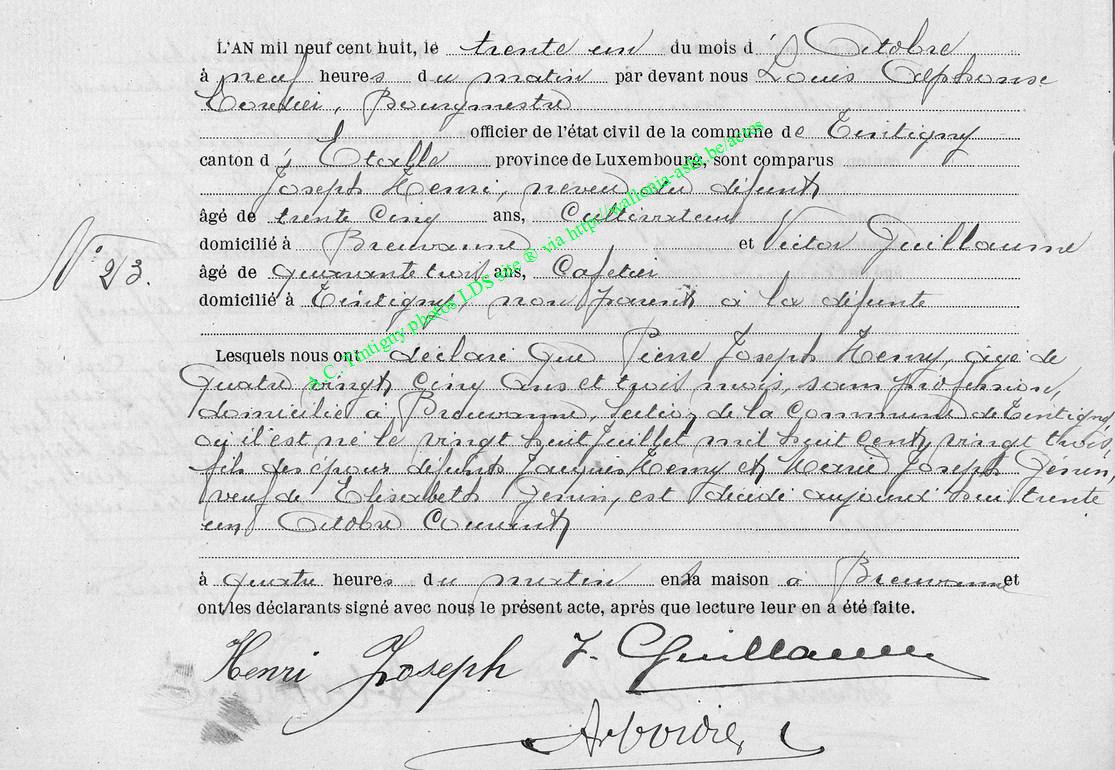 L'AN mil neuf cent huit, le trente un du mois d'Octobre
à neuf heures du matin par devant nous Louis Alphonse
Cordier, Bourgmestre
officier de l'état civil de la commune de Tintigny
canton d'Etalle province de Luxembourg, sont comparus
Joseph Henri, neveu du défunt
âgé de trente cinq ans, Cultivateur
domicilié à Breuvanne et Victor Guillaume
N° 23.
âgé de quarante trois ans, Cafetier
domicilié à Tintigny, non parent à la défunte
Lesquels nous ont déclaré que Pierre Joseph Henry, âgé de
quatre vingt cinq ans et trois mois, sans profession,
domicilié à Breuvanne, section de la Commune de Tintigny,
où il est né le vingt huit Juillet mil huit cent vingt trois,
fils des époux défunts Jacques Henry et Marie Joseph Génin,
veuf de Elisabeth Génin, est décédé aujourd'hui trente
un Octobre Courant
à quatre heures du matin en sa maison à Breuvanne et
ont les déclarants signé avec nous le présent acte, après que lecture leur en a été faite.
Henri Joseph V. Guillaume
A. Cordier
A.C. Tintigny photos LDS site ® via http://wallonia-asbl.be/actes